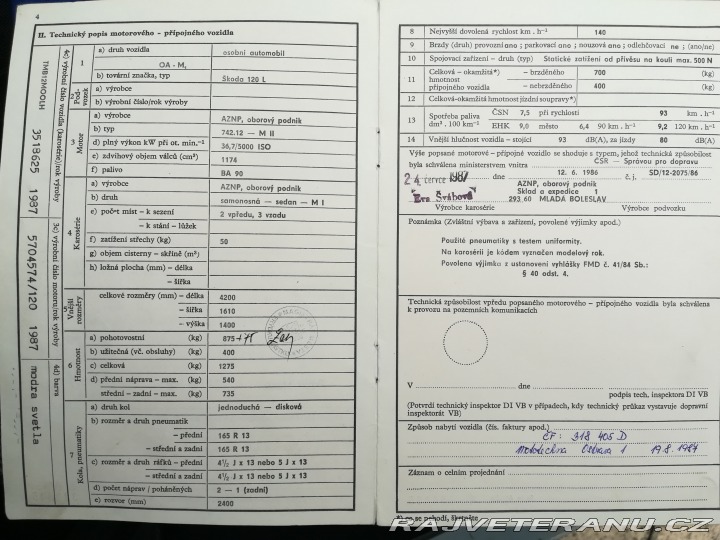 4
II. Technický popis motorového – přípojného vozidla
4c) výrobní číslo vozidla (karosérie)/rok výroby
TMB12MOOLH 3518625 1987
3c) výrobní číslo motoru/rok výroby
5704574/120 1987
4d) barva
modra svetla
1
a) druh vozidla
osobní automobil
OA - M₁
b) tovární značka, typ
Škoda 120 L
2 Podvozek
a) výrobce
b) výrobní číslo/rok výroby
3 Motor
a) výrobce
AZNP, oborový podnik
b) typ
742.12 – M II
d) plný výkon kW při ot. min.⁻¹
36,7/5000 ISO
e) zdvihový objem válců (cm³)
1174
f) palivo
BA 90
4 Karosérie
a) výrobce
AZNP, oborový podnik
b) druh
samonosná – sedan – M I
e) počet míst – k sezení
2 vpředu, 3 vzadu
– k stání – lůžek
f) zatížení střechy (kg)
50
g) objem cisterny – skříně (m³)
h) ložná plocha (mm) – délka
– šířka
5 Vnější rozměry
celkové rozměry (mm) – délka
4200
– šířka
1610
– výška
1400
6 Hmotnost
a) pohotovostní (kg)
875
b) užitečná (vč. obsluhy) (kg)
400
c) celková (kg)
1275
d) přední náprava – max. (kg)
540
střední – zadní – max. (kg)
735
7 Kola, pneumatiky
a) druh kol
jednoduchá – disková
b) rozměr a druh pneumatik
– přední
165 R 13
– střední a zadní
165 R 13
c) rozměr a druh ráfků – přední
4½ J x 13 nebo 5 J x 13
– střední a zadní
4½ J x 13 nebo 5 J x 13
d) počet náprav / poháněných
2 – 1 (zadní)
e) rozvor (mm)
2400
8 Nejvyšší dovolená rychlost km . h⁻¹ 140
9 Brzdy (druh) provozní ano ; parkovací ano ; nouzová ano ; odlehčovací ne ; (ano/ne)
10 Spojovací zařízení – druh (typ) Statické zatížení od přívěsu na kouli max. 500 N
11 Celková – okamžitá*) – brzděného 700 (kg)
hmotnost
přípojného vozidla – nebrzděného 400 (kg)
12 Celková-okamžitá hmotnost jízdní soupravy*) (kg)
13 Spotřeba paliva ČSN 7,5 při rychlosti 93 km . h⁻¹
dm³ . 100 km⁻¹ EHK 9,0 město 6,4 90 km . h⁻¹ 9,2 120 km . h⁻¹
14 Vnější hlučnost vozidla – stojící 93 dB(A), za jízdy 80 dB(A)
Výše popsané motorové – přípojné vozidlo se shoduje s typem, jehož technická způsobilost
byla schválena ministerstvem vnitra ČSR – Správou pro dopravu
24. července 1987 dne 12. 6. 1986 č. j. SD/12-2075/86
AZNP, oborový podnik
Eva Švábová
Sklad a expedice 1
293 60 MLADÁ BOLESLAV
Výrobce karosérie Výrobce podvozku
Poznámka (Zvláštní výbava a zařízení, povolené výjimky apod.)
Použité pneumatiky s testem uniformity.
Na karosérii je kódem vyznačen modelový rok.
Povolena výjimka z ustanovení vyhlášky FMD č. 41/84 Sb.:
§ 40 odst. 4.
Technická způsobilost vpředu popsaného motorového – přípojného vozidla byla schválena
k provozu na pozemních komunikacích
V dne
podpis tech, inspektora DI VB
(Potvrdí technický inspektor DI VB v případech, kdy technický průkaz vystavuje dopravní
inspektorát VB)
Způsob nabytí vozidla (čís. faktury apod.)
ČF: 318 405 D
Mototechna Ostrava 1 19.8.1987
Záznam o celním projednání
*) co se nehodí, škrtněte
RAJVETERANU.CZ